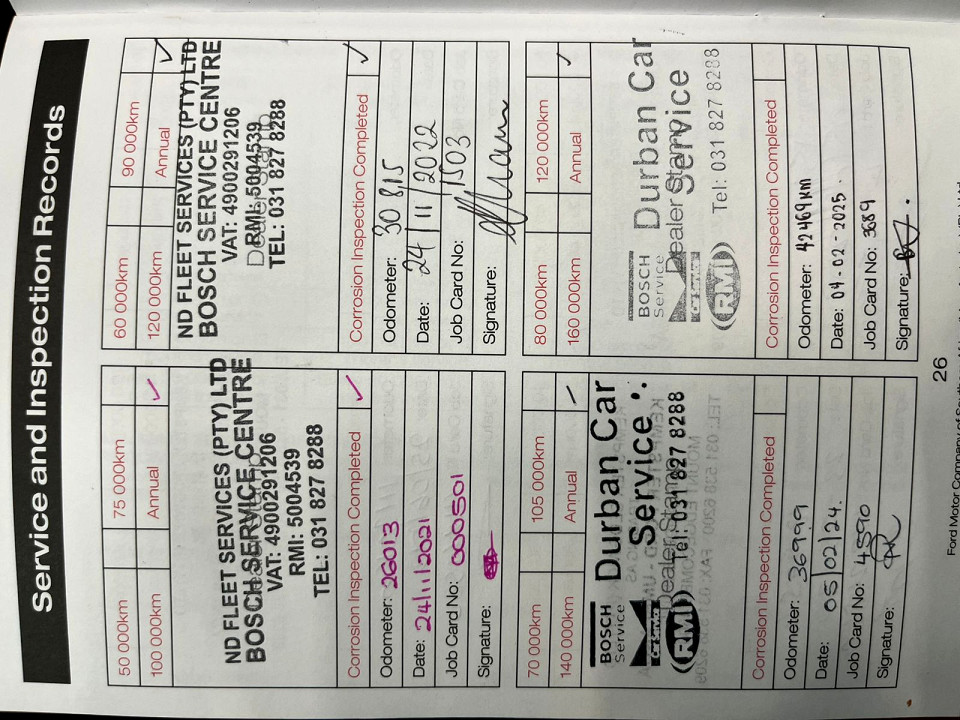 Service and Inspection Records
50 000km 75 000km
100 000km Annual ✓
ND FLEET SERVICES (PTY) LTD
BOSCH SERVICE CENTRE
VAT: 4900291206
RMI: 5004539
TEL: 031 827 8288
Corrosion Inspection Completed ✓
Odometer: 26013
Date: 24/11/2021
Job Card No: 000501
Signature:
60 000km 90 000km
120 000km Annual ✓
ND FLEET SERVICES (PTY) LTD
BOSCH SERVICE CENTRE
VAT: 4900291206
RMI: 5004539
Dealer Stamp
TEL: 031 827 8288
Corrosion Inspection Completed ✓
Odometer: 30 815
Date: 24/11/2022
Job Card No: 1503
Signature:
70 000km 105 000km
140 000km Annual ✓
BOSCH
Service
Durban Car
Service
Dealer Stamp
RMI
Tel: 031 827 8288
Corrosion Inspection Completed
Odometer: 36999
Date: 05/02/24.
Job Card No: 4590
Signature:
80 000km 120 000km
160 000km Annual ✓
BOSCH
Service
Durban Car
Service
Dealer Stamp
RMI
Tel: 031 827 8288
Corrosion Inspection Completed
Odometer: 42469km
Date: 04-02-2025.
Job Card No: 3689
Signature:
26